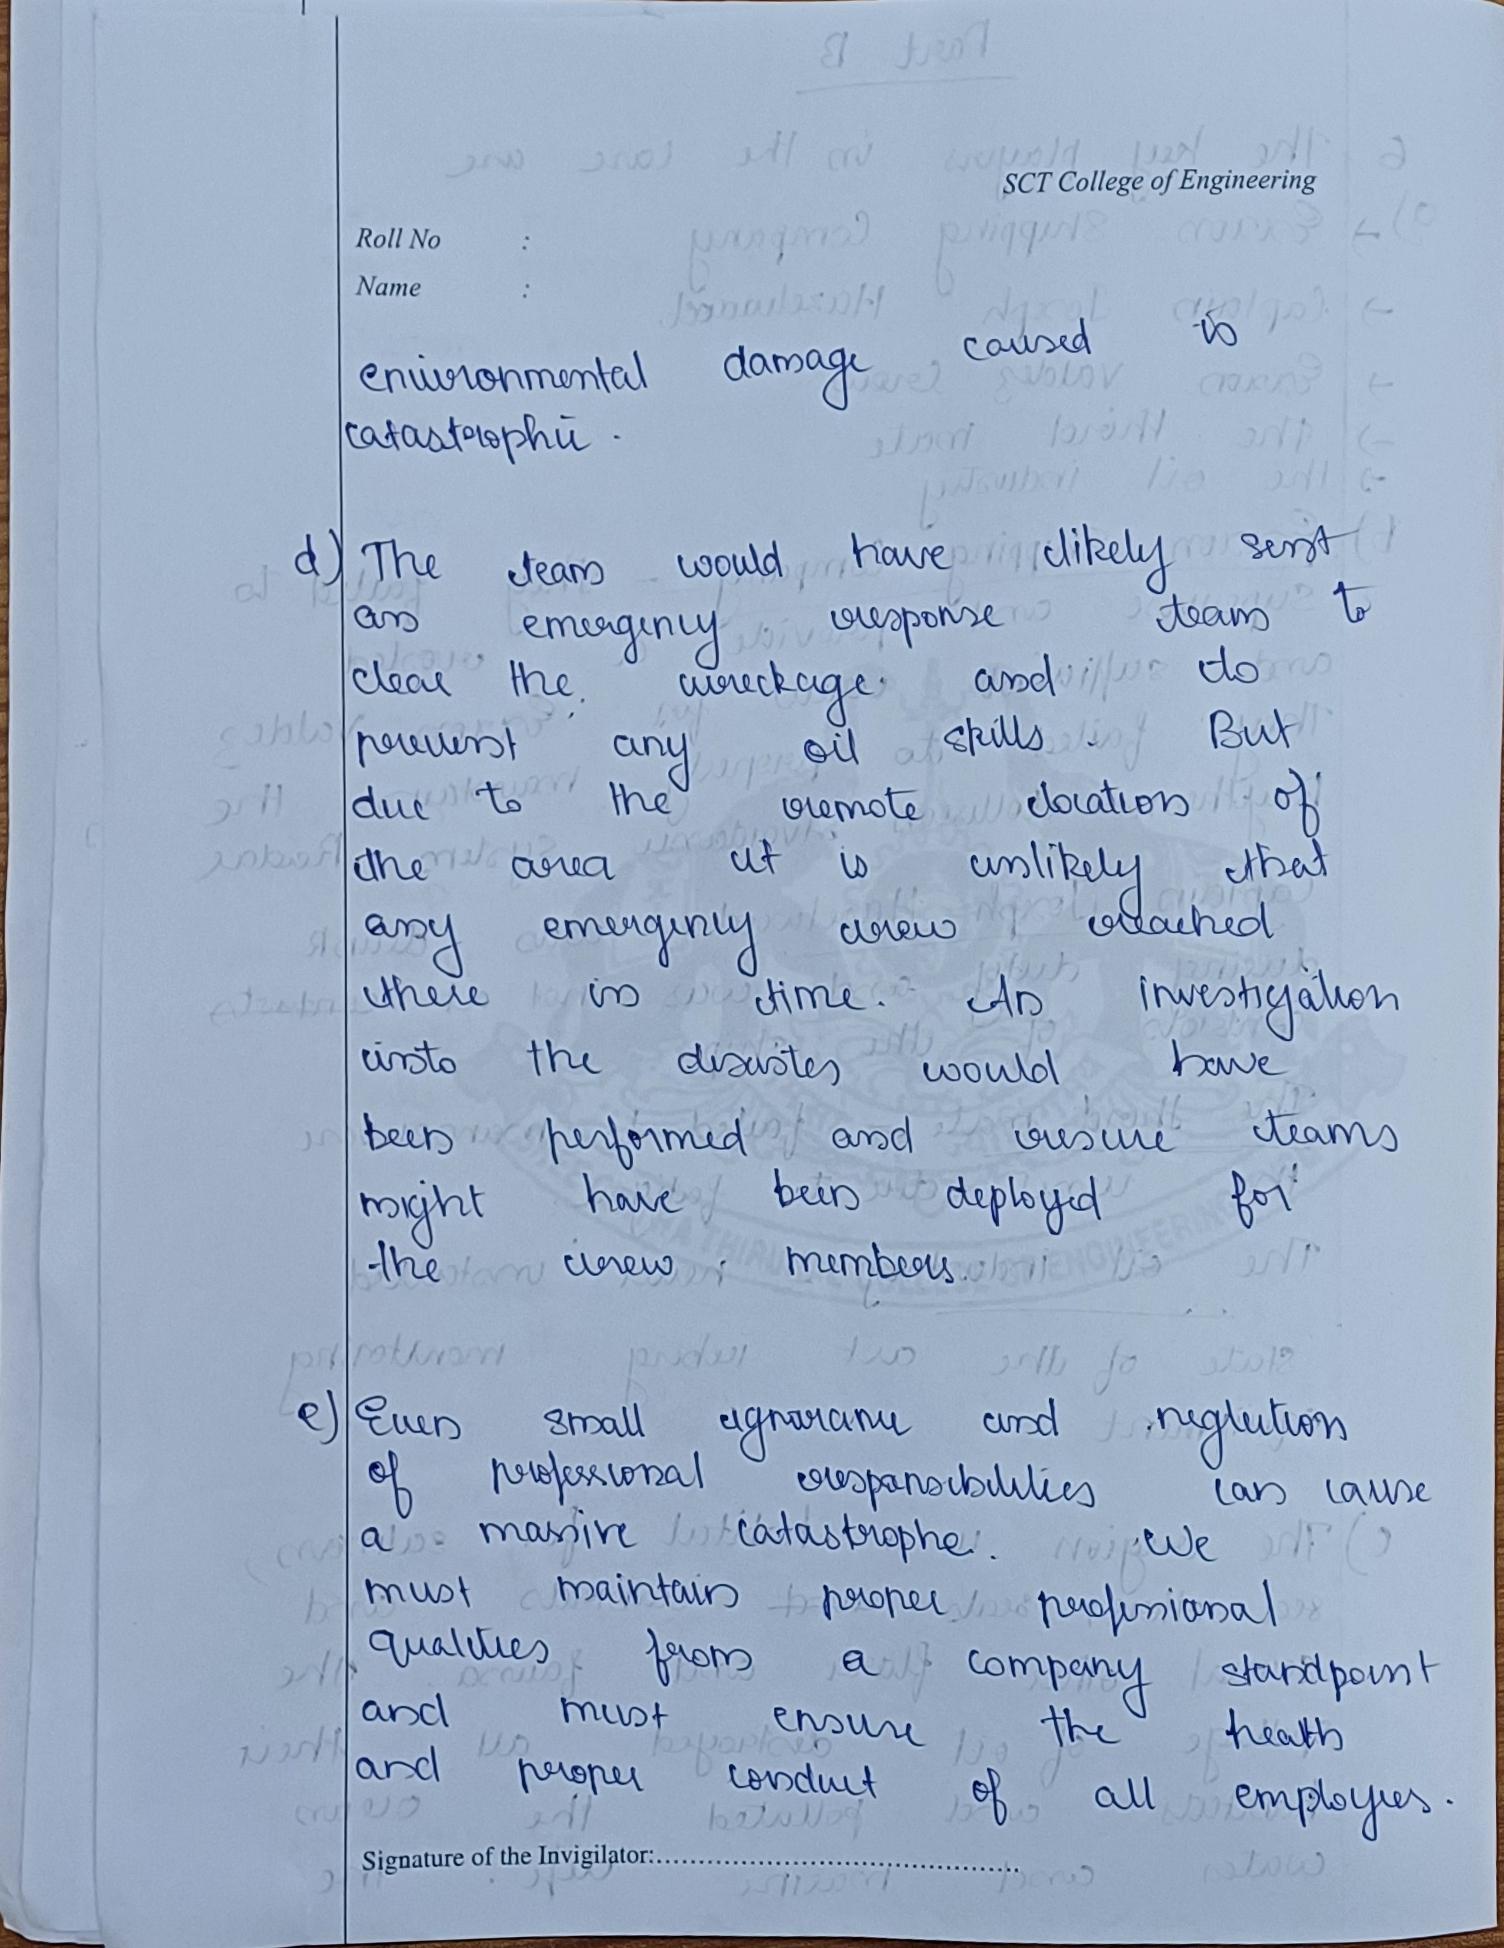 SCT College of Engineering
Roll No :
Name :
environmental damage caused is
catastrophic.
d) The team would have likely sent
an emergency response team to
clear the wreckage and do
prevent any oil skills. But
due to the remote location of
the area it is unlikely that
any emergency crew reached
there in time. An investigation
into the disaster would have
been performed and rescue teams
might have been deployed for
the crew members.
e) Even small ignorance and neglection
of professional responsibilities can cause
a massive catastrophe. We
must maintain proper professional
qualities from a company standpoint
and must ensure the health
and proper conduct of all employees.
Signature of the Invigilator:..........................................